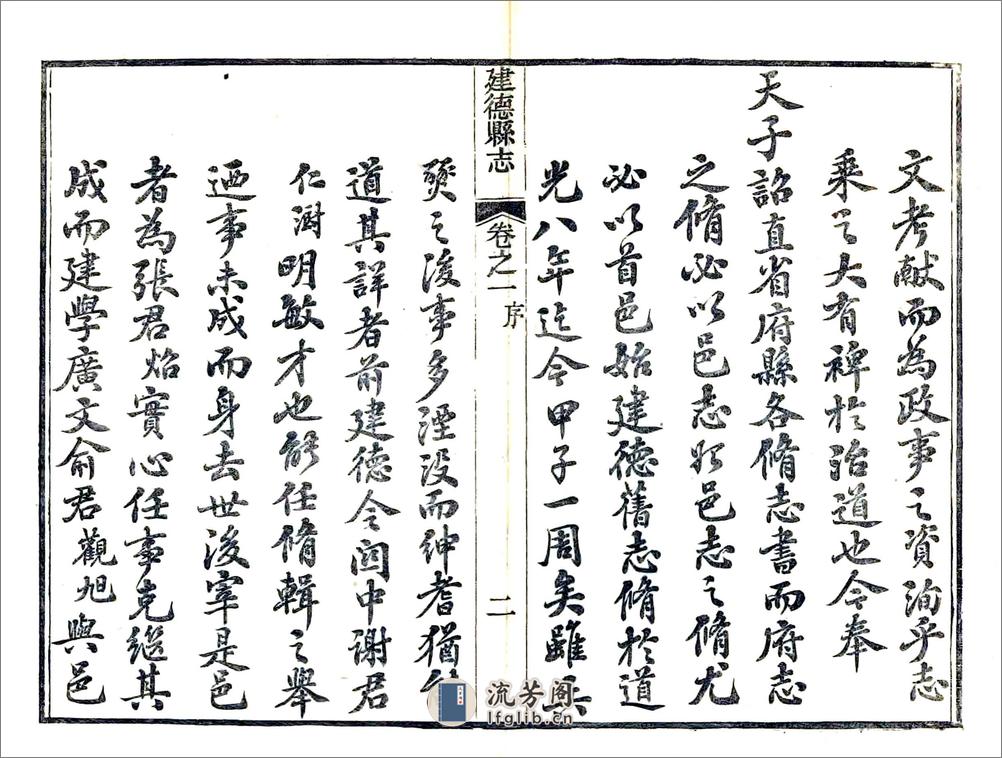 文考獻而為政事之資洵乎志
乘之大有裨於治道也今奉
天子詔直省府縣各脩志書而府志
之脩必以邑志始邑志之脩尤
必以首邑始建德舊志脩於道
光八年迄今甲子一周矣雖兵
建德縣志
卷之一 序
二
燹之後事多湮沒而紳耆猶
道其詳者前建德令閩中謝君
仁澍明敏才也能任脩輯之舉
迺事未成而身去世後宰是邑
者為張君焰實心任事克繼其
成而建學廣文俞君觀旭與邑
流芳阁
lfglib.cn